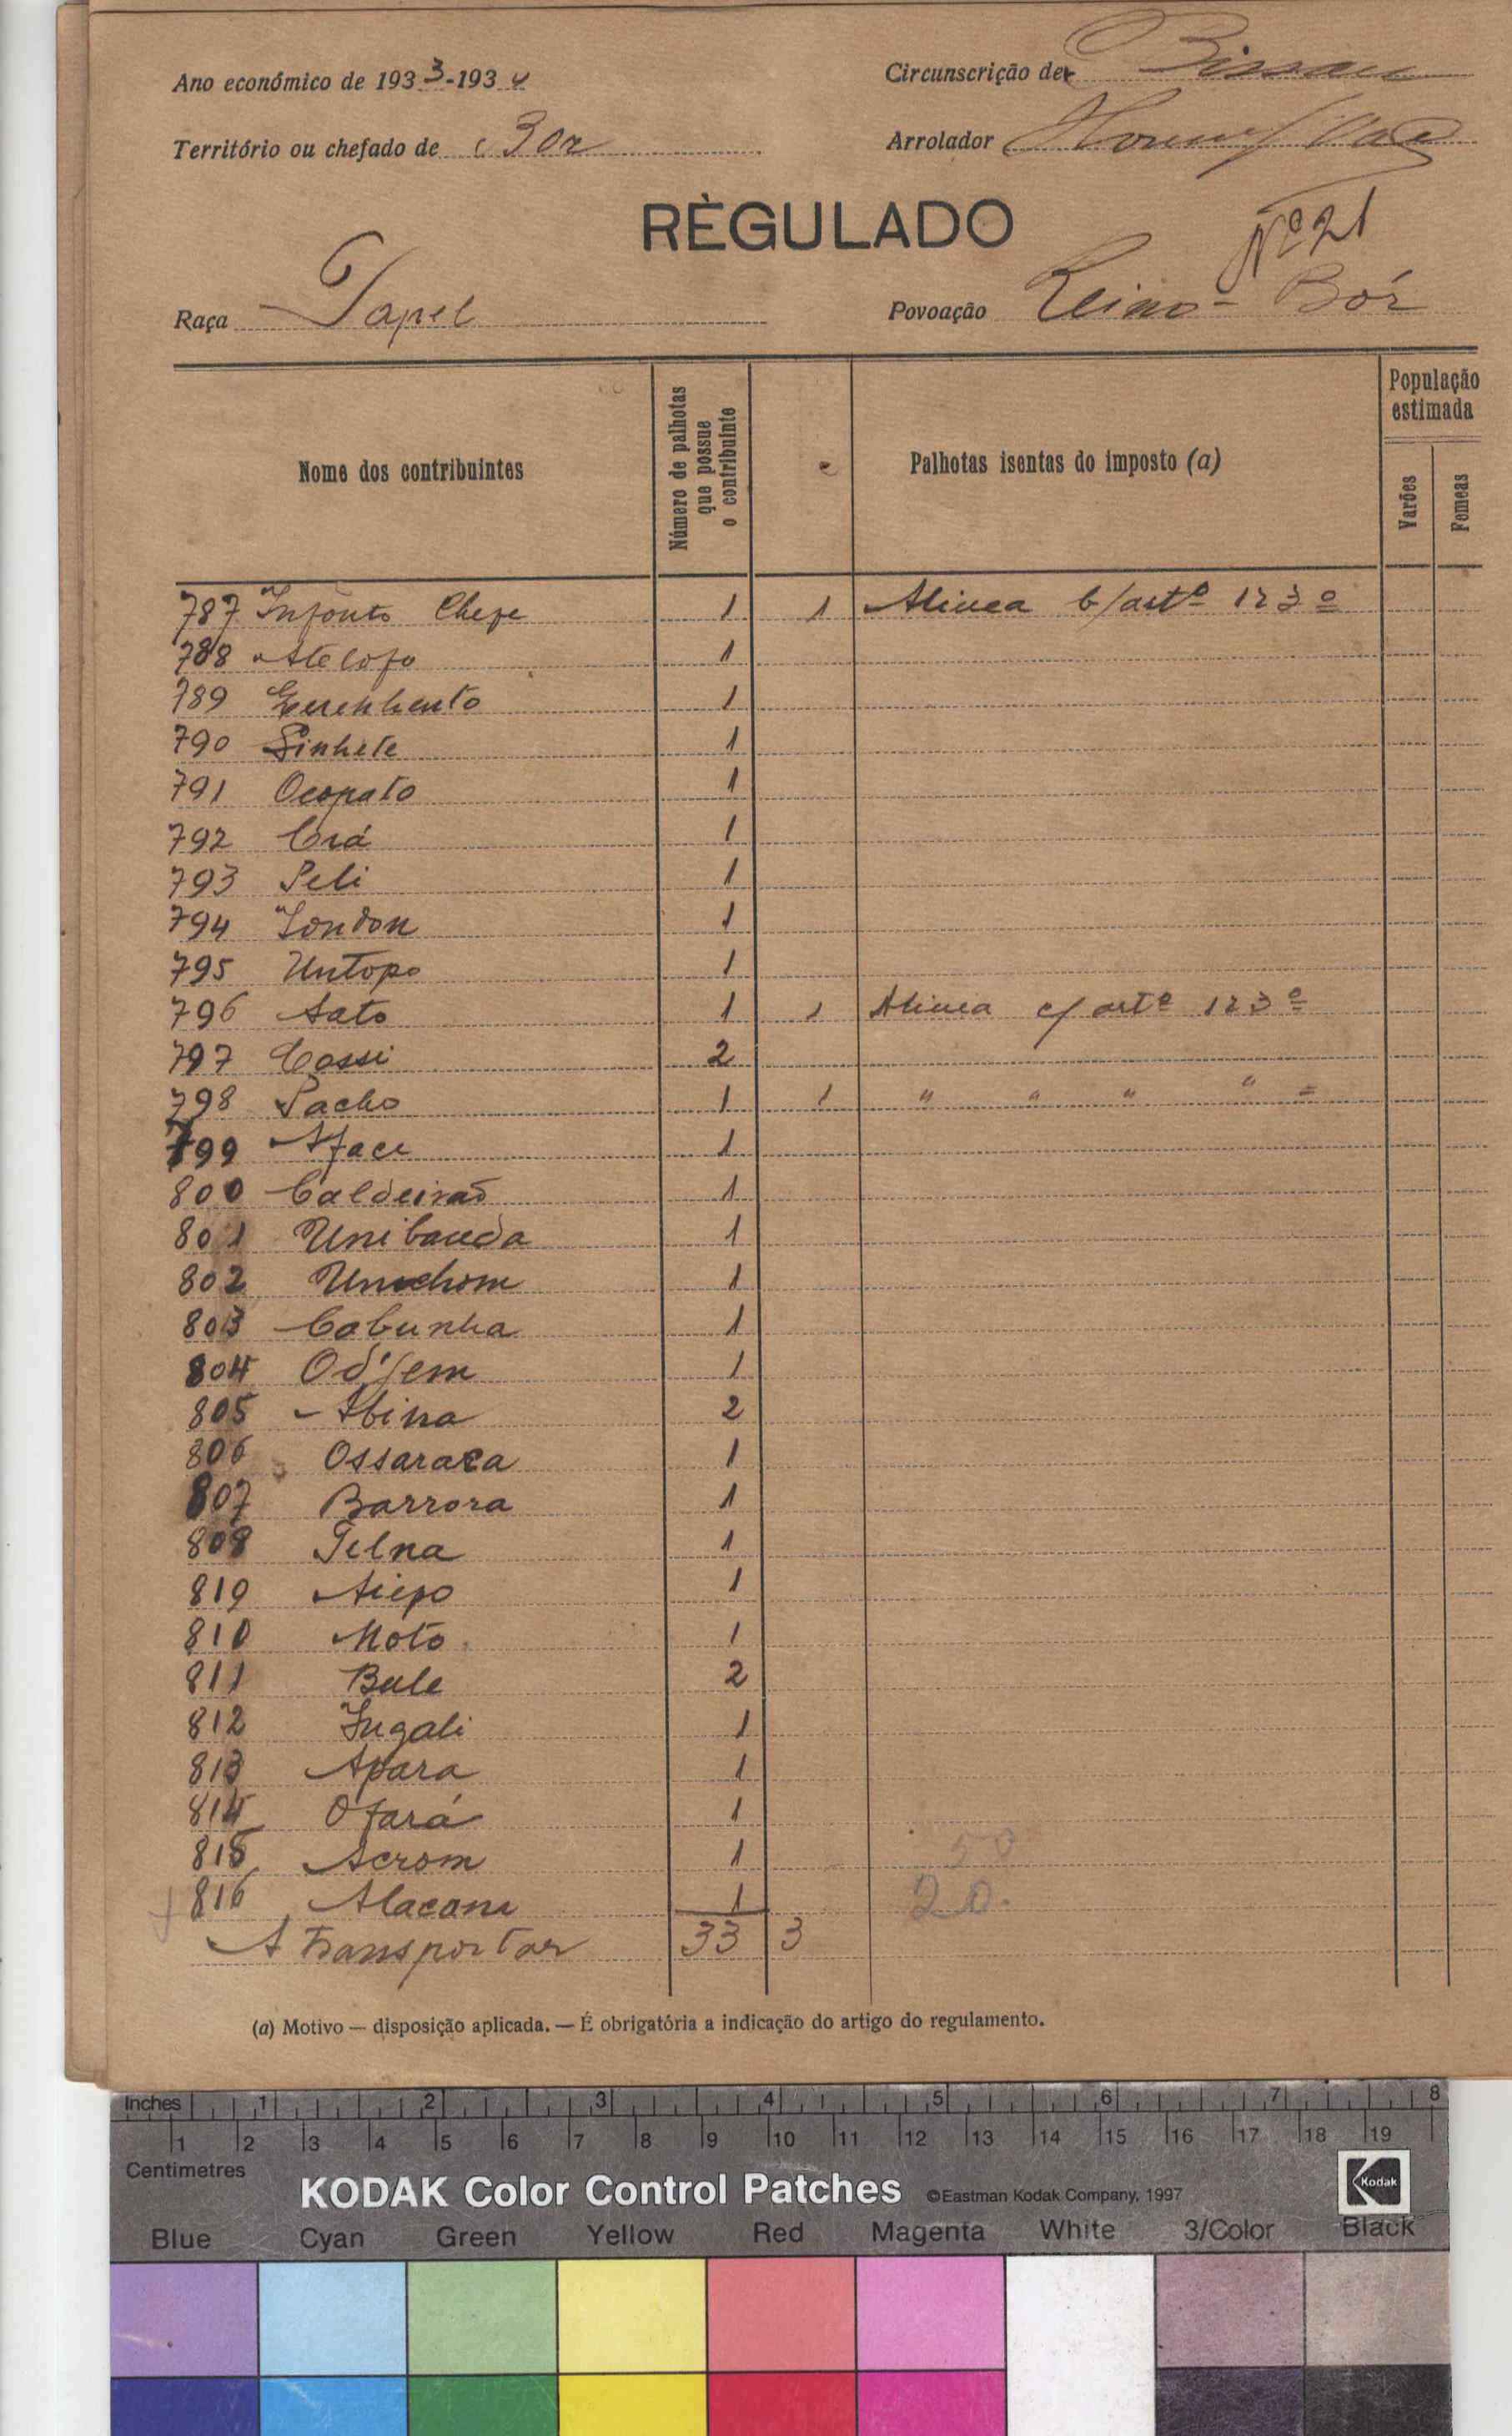 Ano económico de 1933-1934
Circunscrição de Bissau
Território ou chefado de Bor
Arrolador
RÈGULADO
Nº 21
Raça Papel
Povoação Reino-Bór
Nome dos contribuintes
Número de palhotas que possue o contribuinte
Palhotas isentas do imposto (a)
População estimada
Varões
Femeas
787 Infonto Chefe 1 1 Alinea b/artº 123º
788 Atelofo 1
789 1
790 Sinhete 1
791 Ocopato 1
792 Crá 1
793 Peli 1
794 London 1
795 Untopo 1
796 Sato 1 1 Alinea c/ artº 123º
797 Cossi 2
798 Pacho 1 1 " " " " =
799 Aface 1
800 Caldeirão 1
801 Unibanda 1
802 Unuchom 1
803 Cabunha 1
804 Od'jem 1
805 Abina 2
806 Ossaraca 1
807 Barrora 1
808 Telna 1
819 Aiepo 1
810 Moto 1
811 Bule 2
812 Jugali 1
813 Apara 1
814 Ofará 1
815 Acrom 1
50
816 Alacom 1
20.
A transportar 33 3
(a) Motivo — disposição aplicada. — É obrigatória a indicação do artigo do regulamento.
Inches 1 2 3 4 5 6 7 8
1 2 3 4 5 6 7 8 9 10 11 12 13 14 15 16 17 18 19
Centimetres
KODAK Color Control Patches ©Eastman Kodak Company, 1997 Kodak
Blue Cyan Green Yellow Red Magenta White 3/Color Black